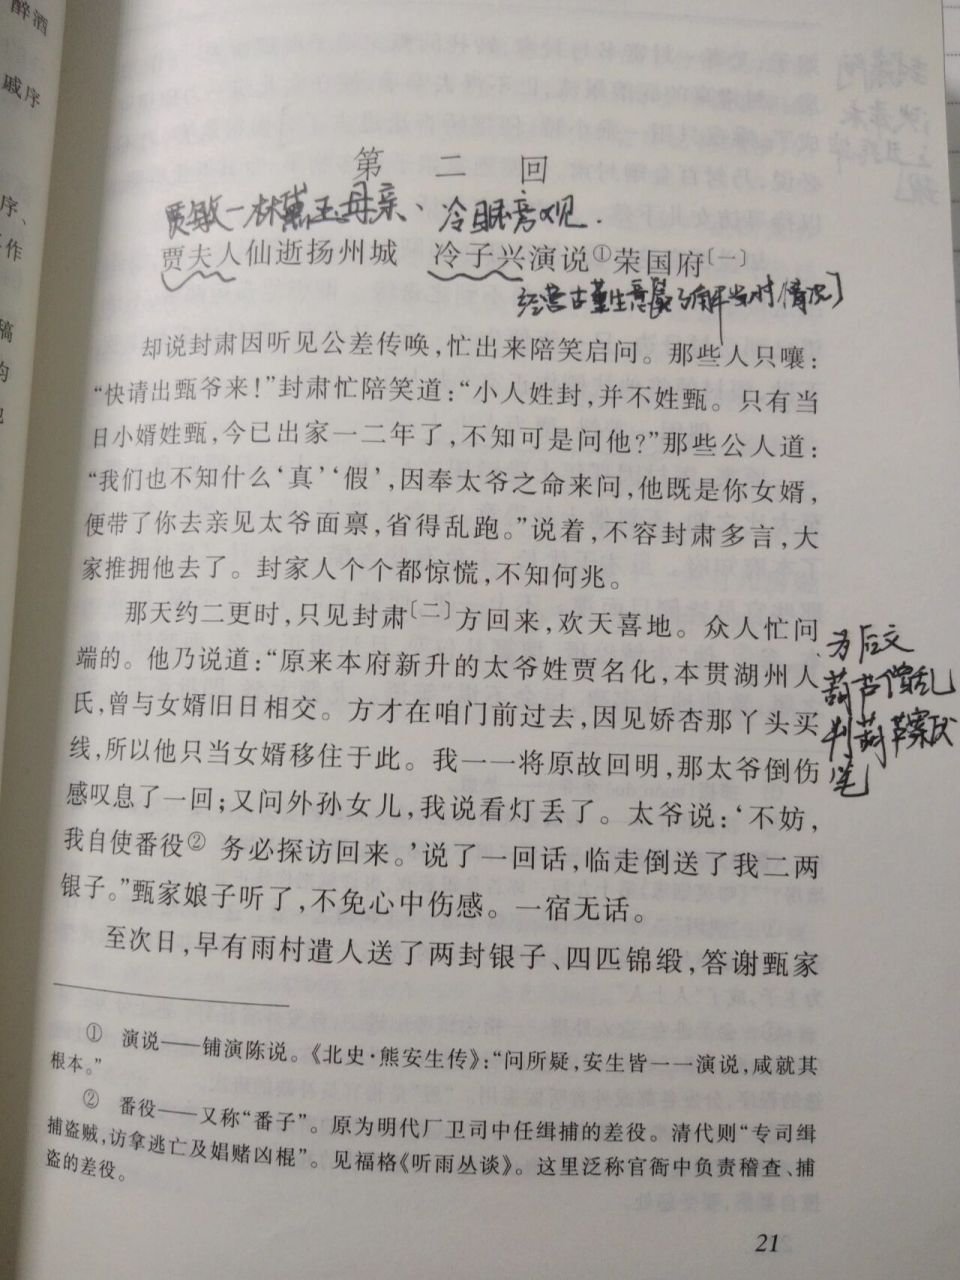 醉酒
戚序
序、
作
稿
第二回
贾敏—林黛玉母亲、冷眼旁观.
贾夫人仙逝扬州城 冷子兴演说①荣国府〔一〕
经营古董生意最了解当时情况]
却说封肃因听见公差传唤，忙出来陪笑启问。那些人只嚷：
“快请出甄爷来！”封肃忙陪笑道：“小人姓封，并不姓甄。只有当
日小婿姓甄，今已出家一二年了，不知可是问他？”那些公人道：
“我们也不知什么‘真’‘假’，因奉太爷之命来问，他既是你女婿，
便带了你去亲见太爷面禀，省得乱跑。”说着，不容封肃多言，大
家推拥他去了。封家人个个都惊慌，不知何兆。
那天约二更时，只见封肃〔二〕方回来，欢天喜地。众人忙问
端的。他乃说道：“原来本府新升的太爷姓贾名化，本贯湖州人
氏，曾与女婿旧日相交。方才在咱门前过去，因见娇杏那丫头买
线，所以他只当女婿移住于此。我一一将原故回明，那太爷倒伤
感叹息了一回；又问外孙女儿，我说看灯丢了。太爷说：‘不妨，
我自使番役② 务必探访回来。’说了一回话，临走倒送了我二两
银子。”甄家娘子听了，不免心中伤感。一宿无话。
至次日，早有雨村遣人送了两封银子、四匹锦缎，答谢甄家
为后文
葫芦僧乱
判葫芦案伏
笔
① 演说——铺演陈说。《北史·熊安生传》：“问所疑，安生皆一一演说，咸就其
根本。”
② 番役——又称“番子”。原为明代厂卫司中任缉捕的差役。清代则“专司缉
捕盗贼，访拿逃亡及娼赌凶棍”。见福格《听雨丛谈》。这里泛称官衙中负责稽查、捕
盗的差役。
21